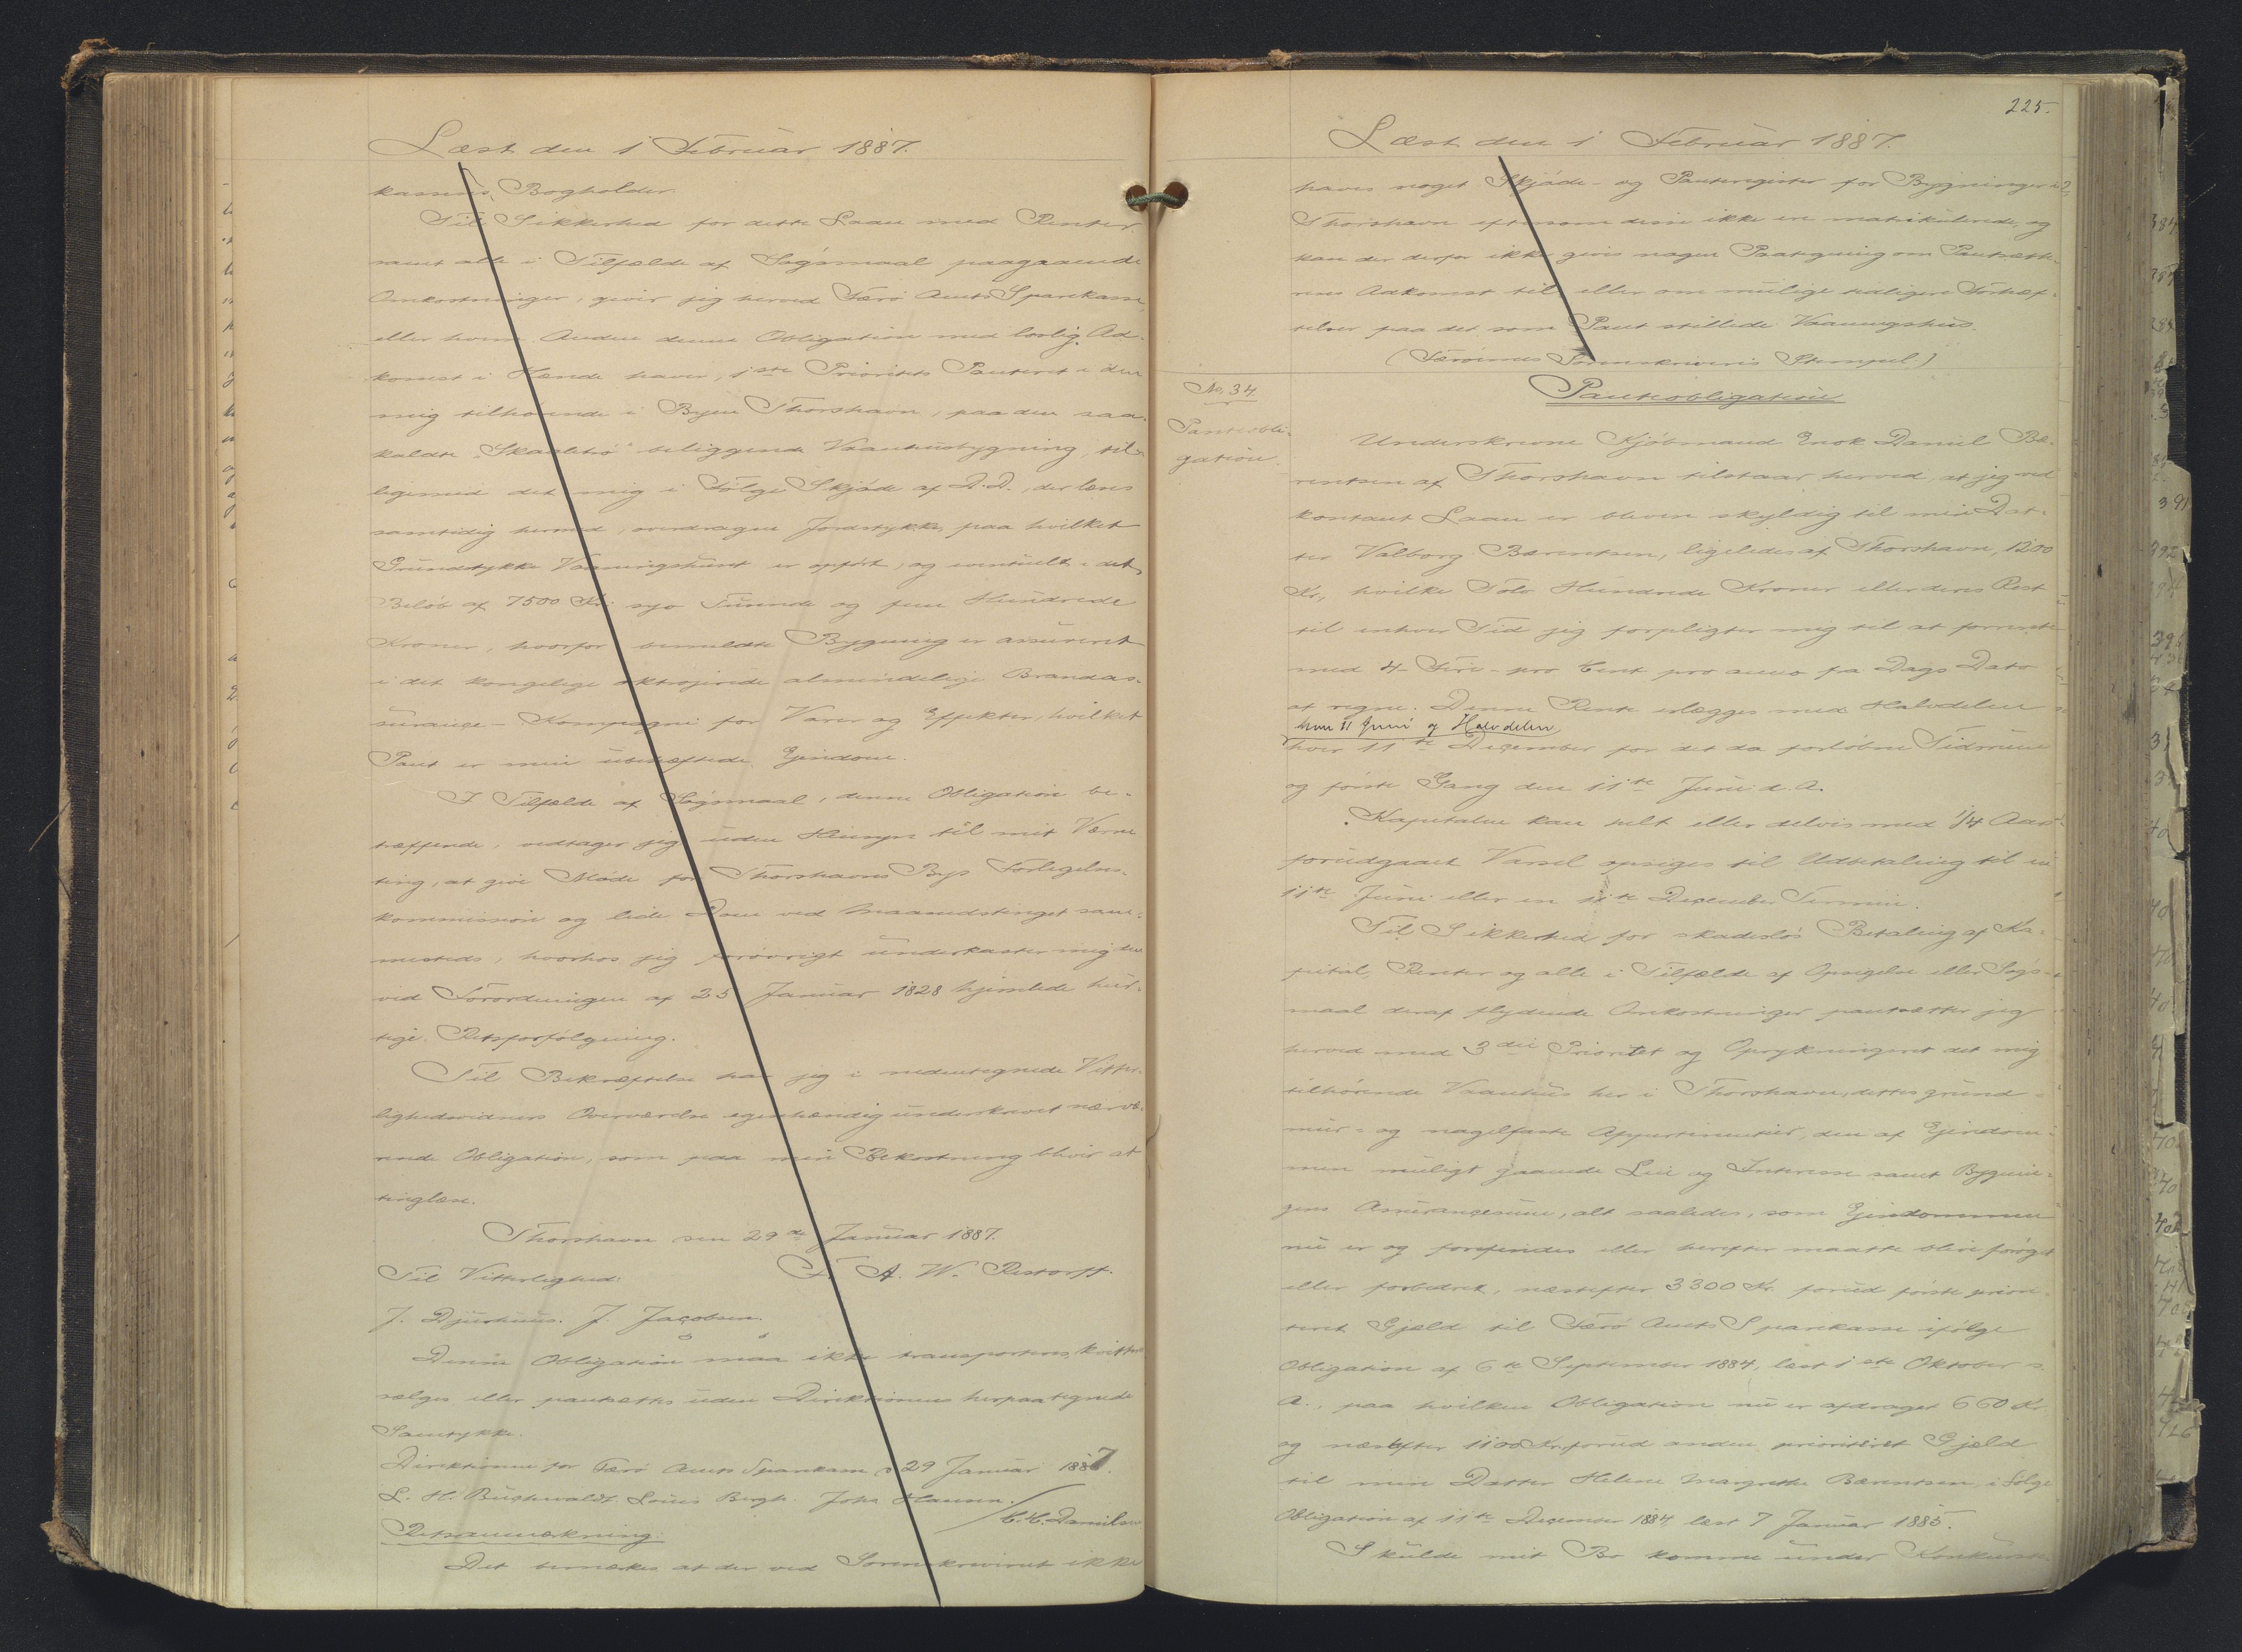 Læst den 1 Februar 1887.
kassens Bogholder.
Til Sikkerhed for dette Laan med Renter
samt alle i Tilfælde af Søgsmaal paagaaende
Omkostninger, giver jeg herved Færø Amts Sparekasse,
eller hvem Anden denne Obligation med lovlig Ad-
komst i Hænde haver, 1ste Prioritets Panteret i den
mig tilhørende i Byen Thorshavn, paa den saa-
kaldte "Skaaletrø" beliggende Vaanhusbygning, til-
ligemed det mig i Følge Skjøde af D.D., der læses
samtidig hermed, overdragne Jordstykke, paa hvilket
Grundstykke Vaaningshuset er opført, og eventuelt i det
Beløb af 7500 Kr. syv Tusinde og fem Hundrede
Kroner, hvorfor bemeldte Bygning er assureret
i det kongelige oktrojerede almindelige Brandas-
surance-Kompagni for Varer og Effekter, hvilket
Pant er min ubehæftede Ejendom.
I Tilfælde af Søgsmaal, denne Obligation be-
træffende, vedtager jeg uden Hensyn til mit Værne-
ting, at give Møde for Thorshavns Bys Forligelses-
kommission og lide Dom ved Maanedstinget sam-
mesteds, hvorhos jeg forøvrigt underkaster mig den
ved Forordningen af 25 Januar 1828 hjemlede hur-
tige Retsforfølgning.
Til Bekræftelse har jeg i nedentegnede Vitter-
lighedsvidners Overværelse egenhændig underskrevet nærvæ-
rende Obligation, som paa min Bekostning bliver at
tinglæse.
Thorshavn den 29de Januar 1887.
Til Vitterlighed: A. W. Restorff.
J. Djurhuus. J. Jacobsen.
Denne Obligation maa ikke transporteres, kvitteres
sælges eller pantsættes uden Direktionens herpaategnede
Samtykke.
Direktionen for Færø Amts Sparekasse d 29 Januar 1887.
L. H. Buchwaldt Louis Bergh. Johs Hansen.
/C. C. Danielsen
Retsanmærkning.
Det bemærkes at der ved Sorenskriveriet ikke
225.
Læst den 1 Februar 1887.
haves noget Skjøde- og Panteregister for Bygninger i
Thorshavn eftersom disse ikke ere matrikulerede, og
kan der derfor ikke gives nogen Paategning om Pantsætte-
rens Adkomst til eller om mulige tidligere Behæf-
telser paa det som Pant stillede Vaaningshus.
(Færøernes Sorenskriveris Stempel)
No. 34.
Panteobli-
gation.
Panteobligation
Underskrevne Kjøbmand Enok Daniel Bæ-
rentsen af Thorshavn tilstaar herved, at jeg ved
kontant Laan er bleven skyldig til min Dat-
ter Valborg Bærentsen, ligeledes af Thorshavn, 1200
Kr., hvilke Tolv Hundrede Kroner eller deres Rest
til enhver Tid jeg forpligter mig til at forrente
med 4 - Fire - pro Cent pro anno fra Dags Dato
at regne. Denne Rente erlægges med Halvdelen
hver 11 Juni og Halvdelen
hver 11te December for det da forløbne Tidsrum
og første Gang den 11te Juni d. A.
Kapitalen kan helt eller delvis med 1/4 Aars
forudgaaet Varsel opsiges til Udbetaling til en
11te Juni eller en 11te December Termin.
Til Sikkerhed for skadesløs Betaling af Ka-
pital, Renter og alle i Tilfælde af Opsigelse eller Søgs-
maal deraf flydende Omkostninger pantsætter jeg
herved med 3die Prioritet og Oprykningsret det mig
tilhørende Vaanhus her i Thorshavn, dettes grund-
mur- og nagelfaste Appertinentier, den af Ejendom-
men muligt gaaende Leie og Interesse samt Bygnin-
gens Assurancesum, alt saaledes, som Ejendommen
nu er og forefindes eller herefter maatte blive forøget
eller forbedret, næstefter 3300 Kr. forud første priori-
teret Gjæld til Færø Amts Sparekasse ifølge
Obligation af 6te September 1884, læst 1ste Oktober s.
A., paa hvilken Obligation nu er afdraget 660 Kr.
og næstefter 1100 Kr. forud anden prioriteret Gjæld
til min Datter Helene Margrethe Bærentsen, i Følge
Obligation af 11te December 1884 læst 7 Januar 1885.
Skulde mit Bo komme under Konkurs